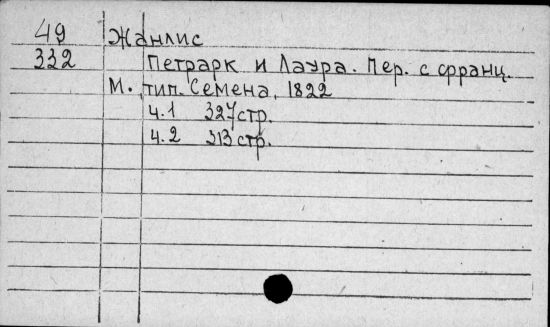 49 Жанлис
332 Петрарк и Лаура. Пер. с франц.
М. тип. Семена, 1822
ч.1 327 стр.
ч.2 313 стр.